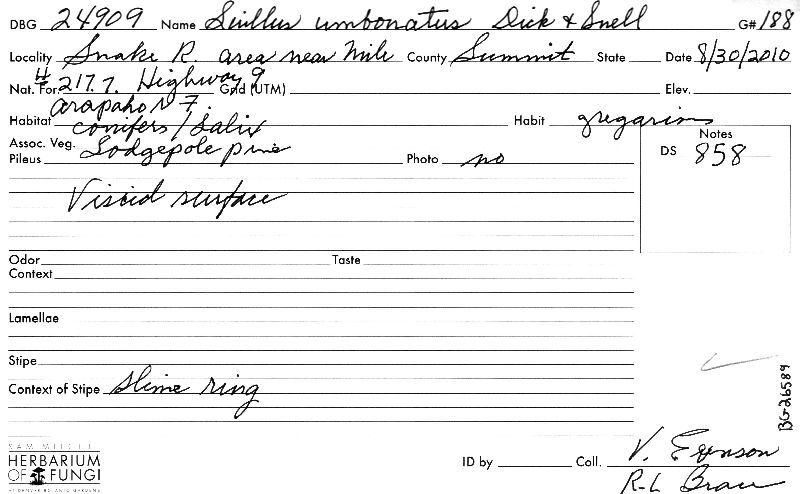 DBG 24909 Name Suillus umbonatus Dick & Snell G# 188
Locality Snake R. area near Mile County Summit State Date 8/30/2010
Nat. For. # 217.7. Highway 9 Grid (UTM) Elev.
Arapaho N F.
Habitat conifers/Salix Habit gregarious
Assoc. Veg. Lodgepole pine
Notes
DS 858
Pileus Photo no
Viscid surface
Odor Taste
Context
Lamellae
Stipe
Context of Stipe slime ring
BG-26589
SAM MITCHEL
HERBARIUM
OF FUNGI
AT DENVER BOTANIC GARDENS
ID by Coll. V. Evenson
R-L Brace